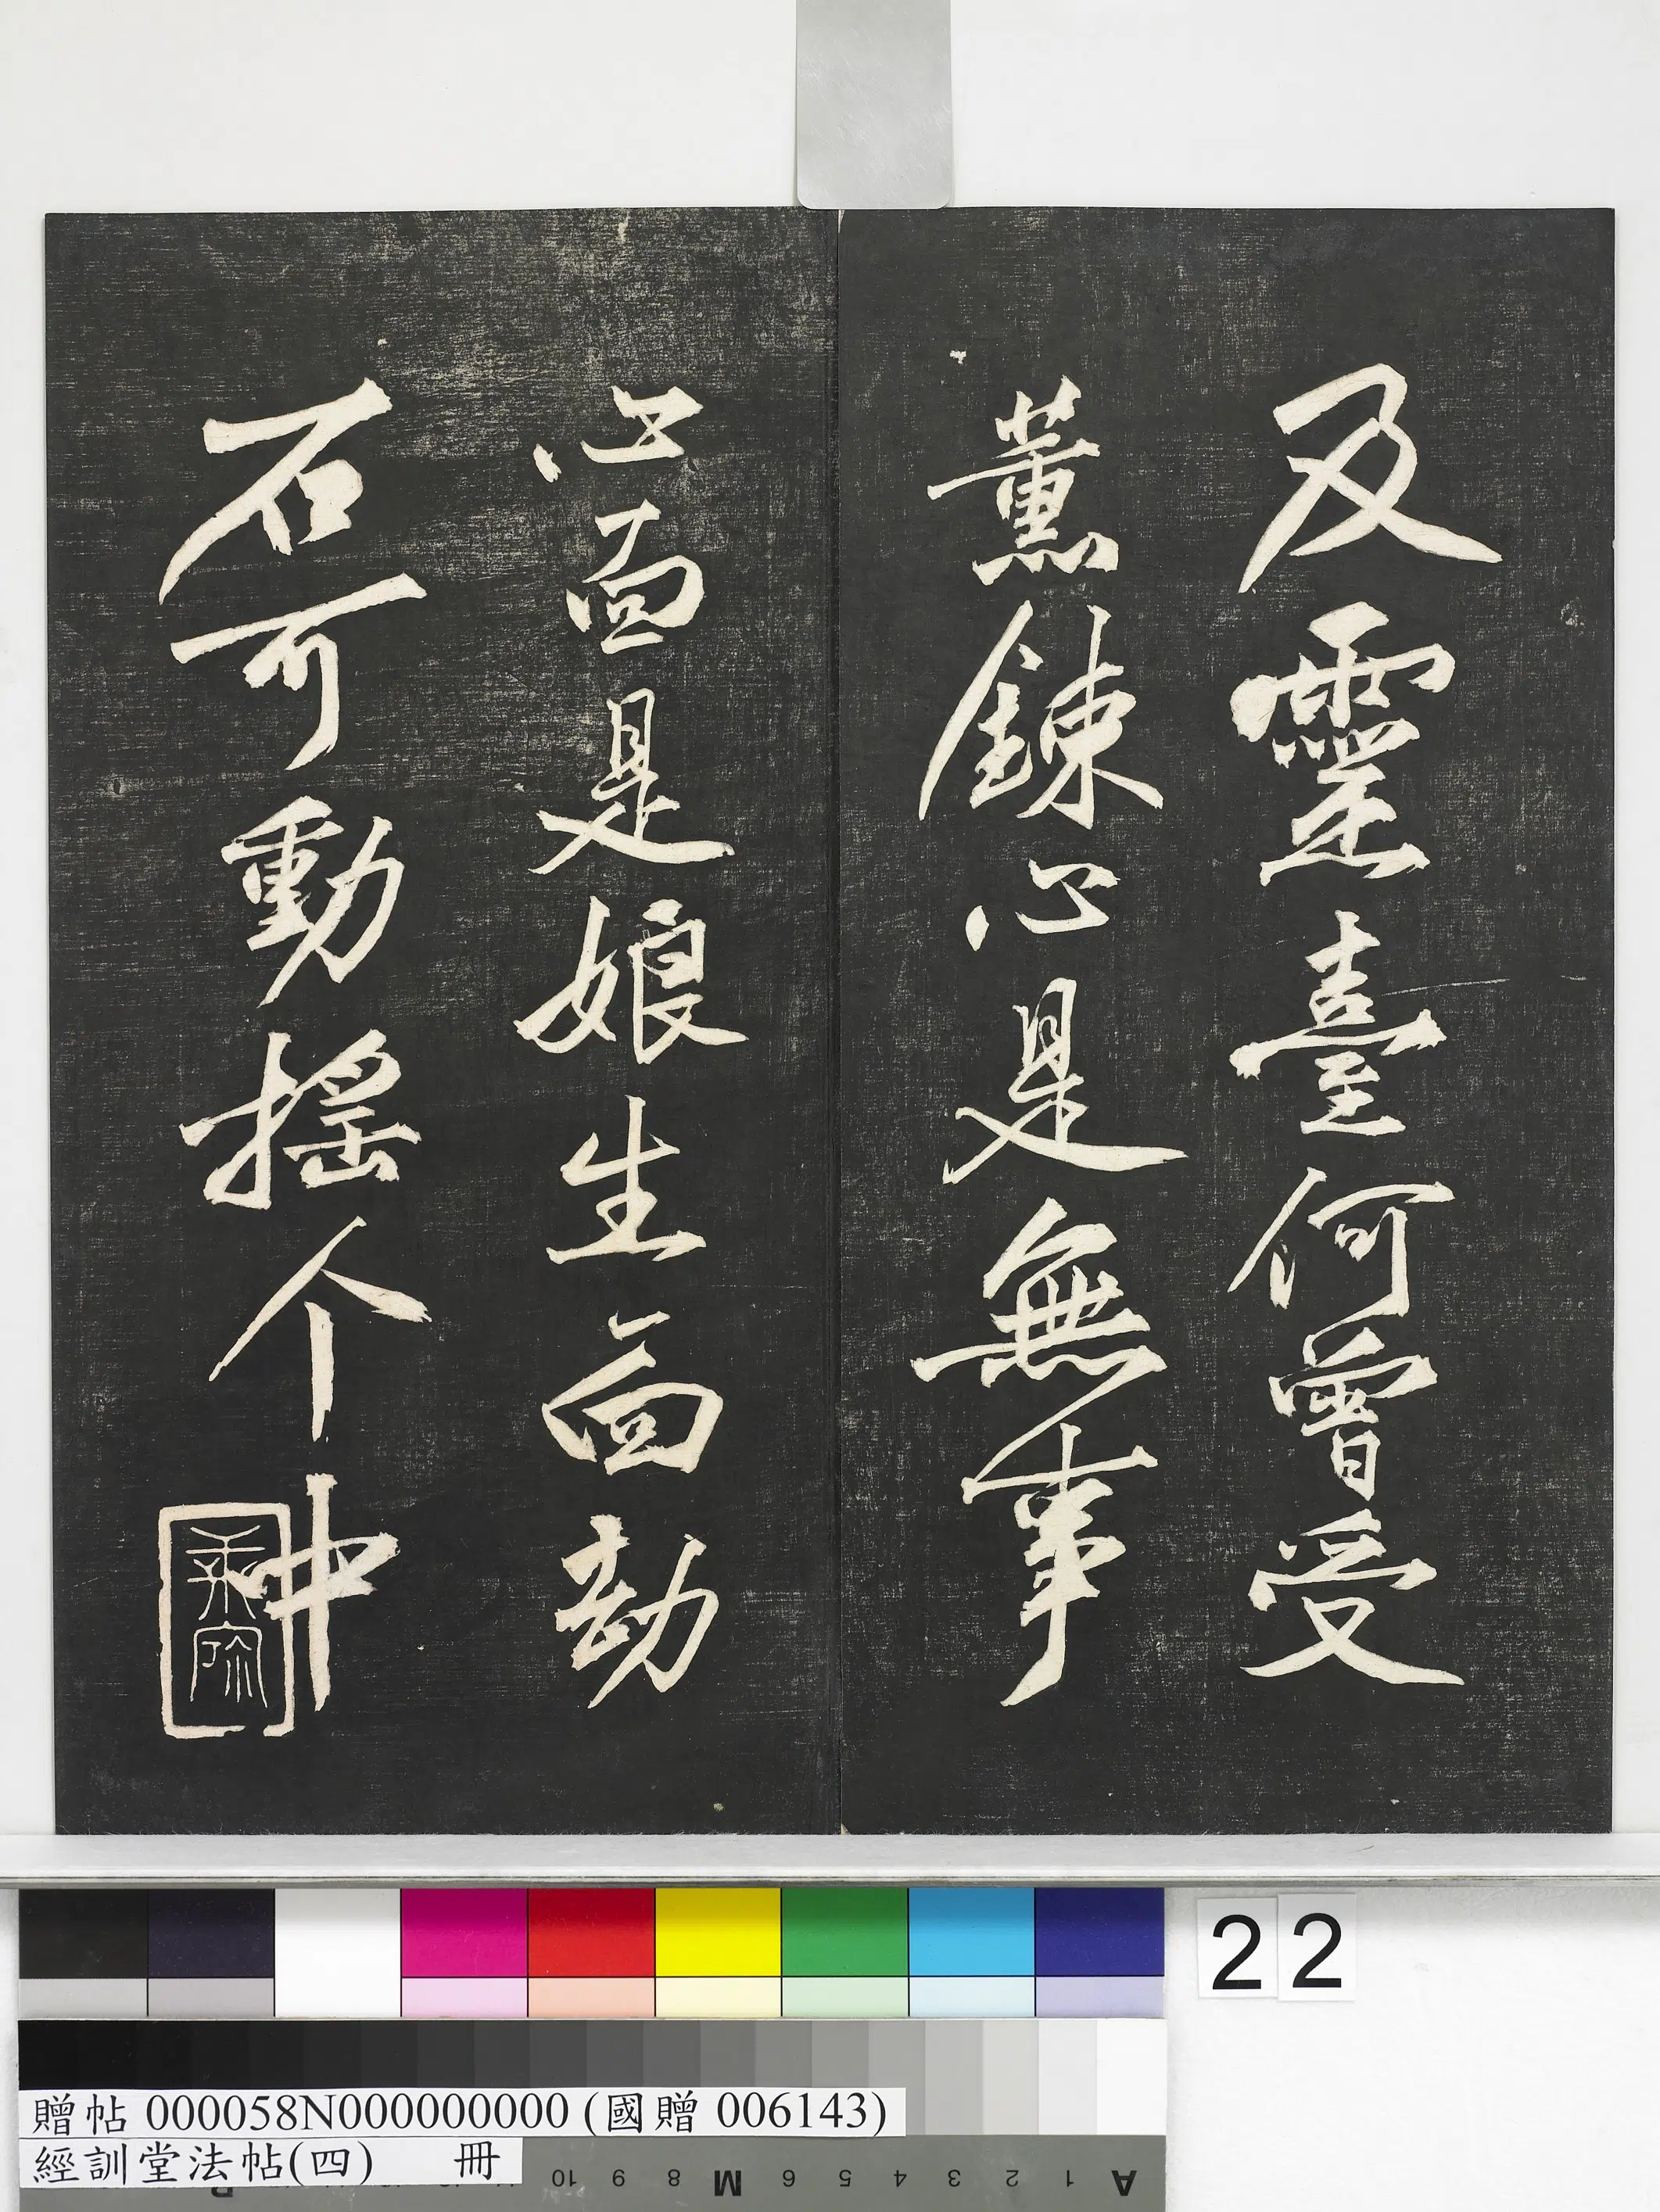 及靈臺何曾受
薰鍊心是無事
心面是娘生面劫
石可動搖个中
22
贈帖 000058N000000000 (國贈 006143)
經訓堂法帖(四) 冊
10 9 8 M 6 5 4 3 2 1 A